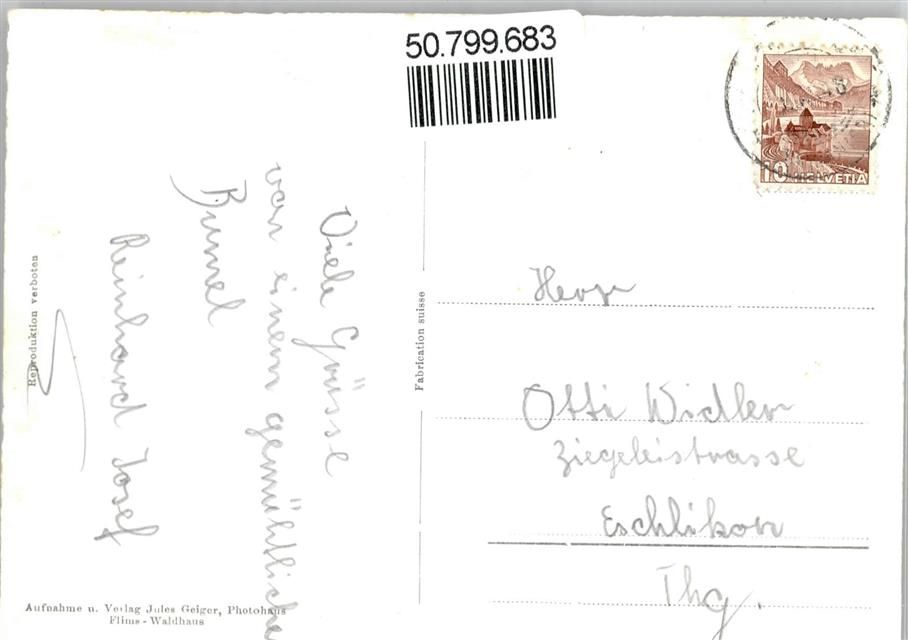 50.799.683
10 HELVETIA
Viele Grüsse
von einem gemühtlichen
Bumel
Reinhard Josef
Reproduktion verboten
Fabrication suisse
Herr
Otti Widler
Ziegeleistrasse
Eschlikon
Thg.
Aufnahme u. Verlag Jules Geiger, Photohaus
Flims - Waldhaus